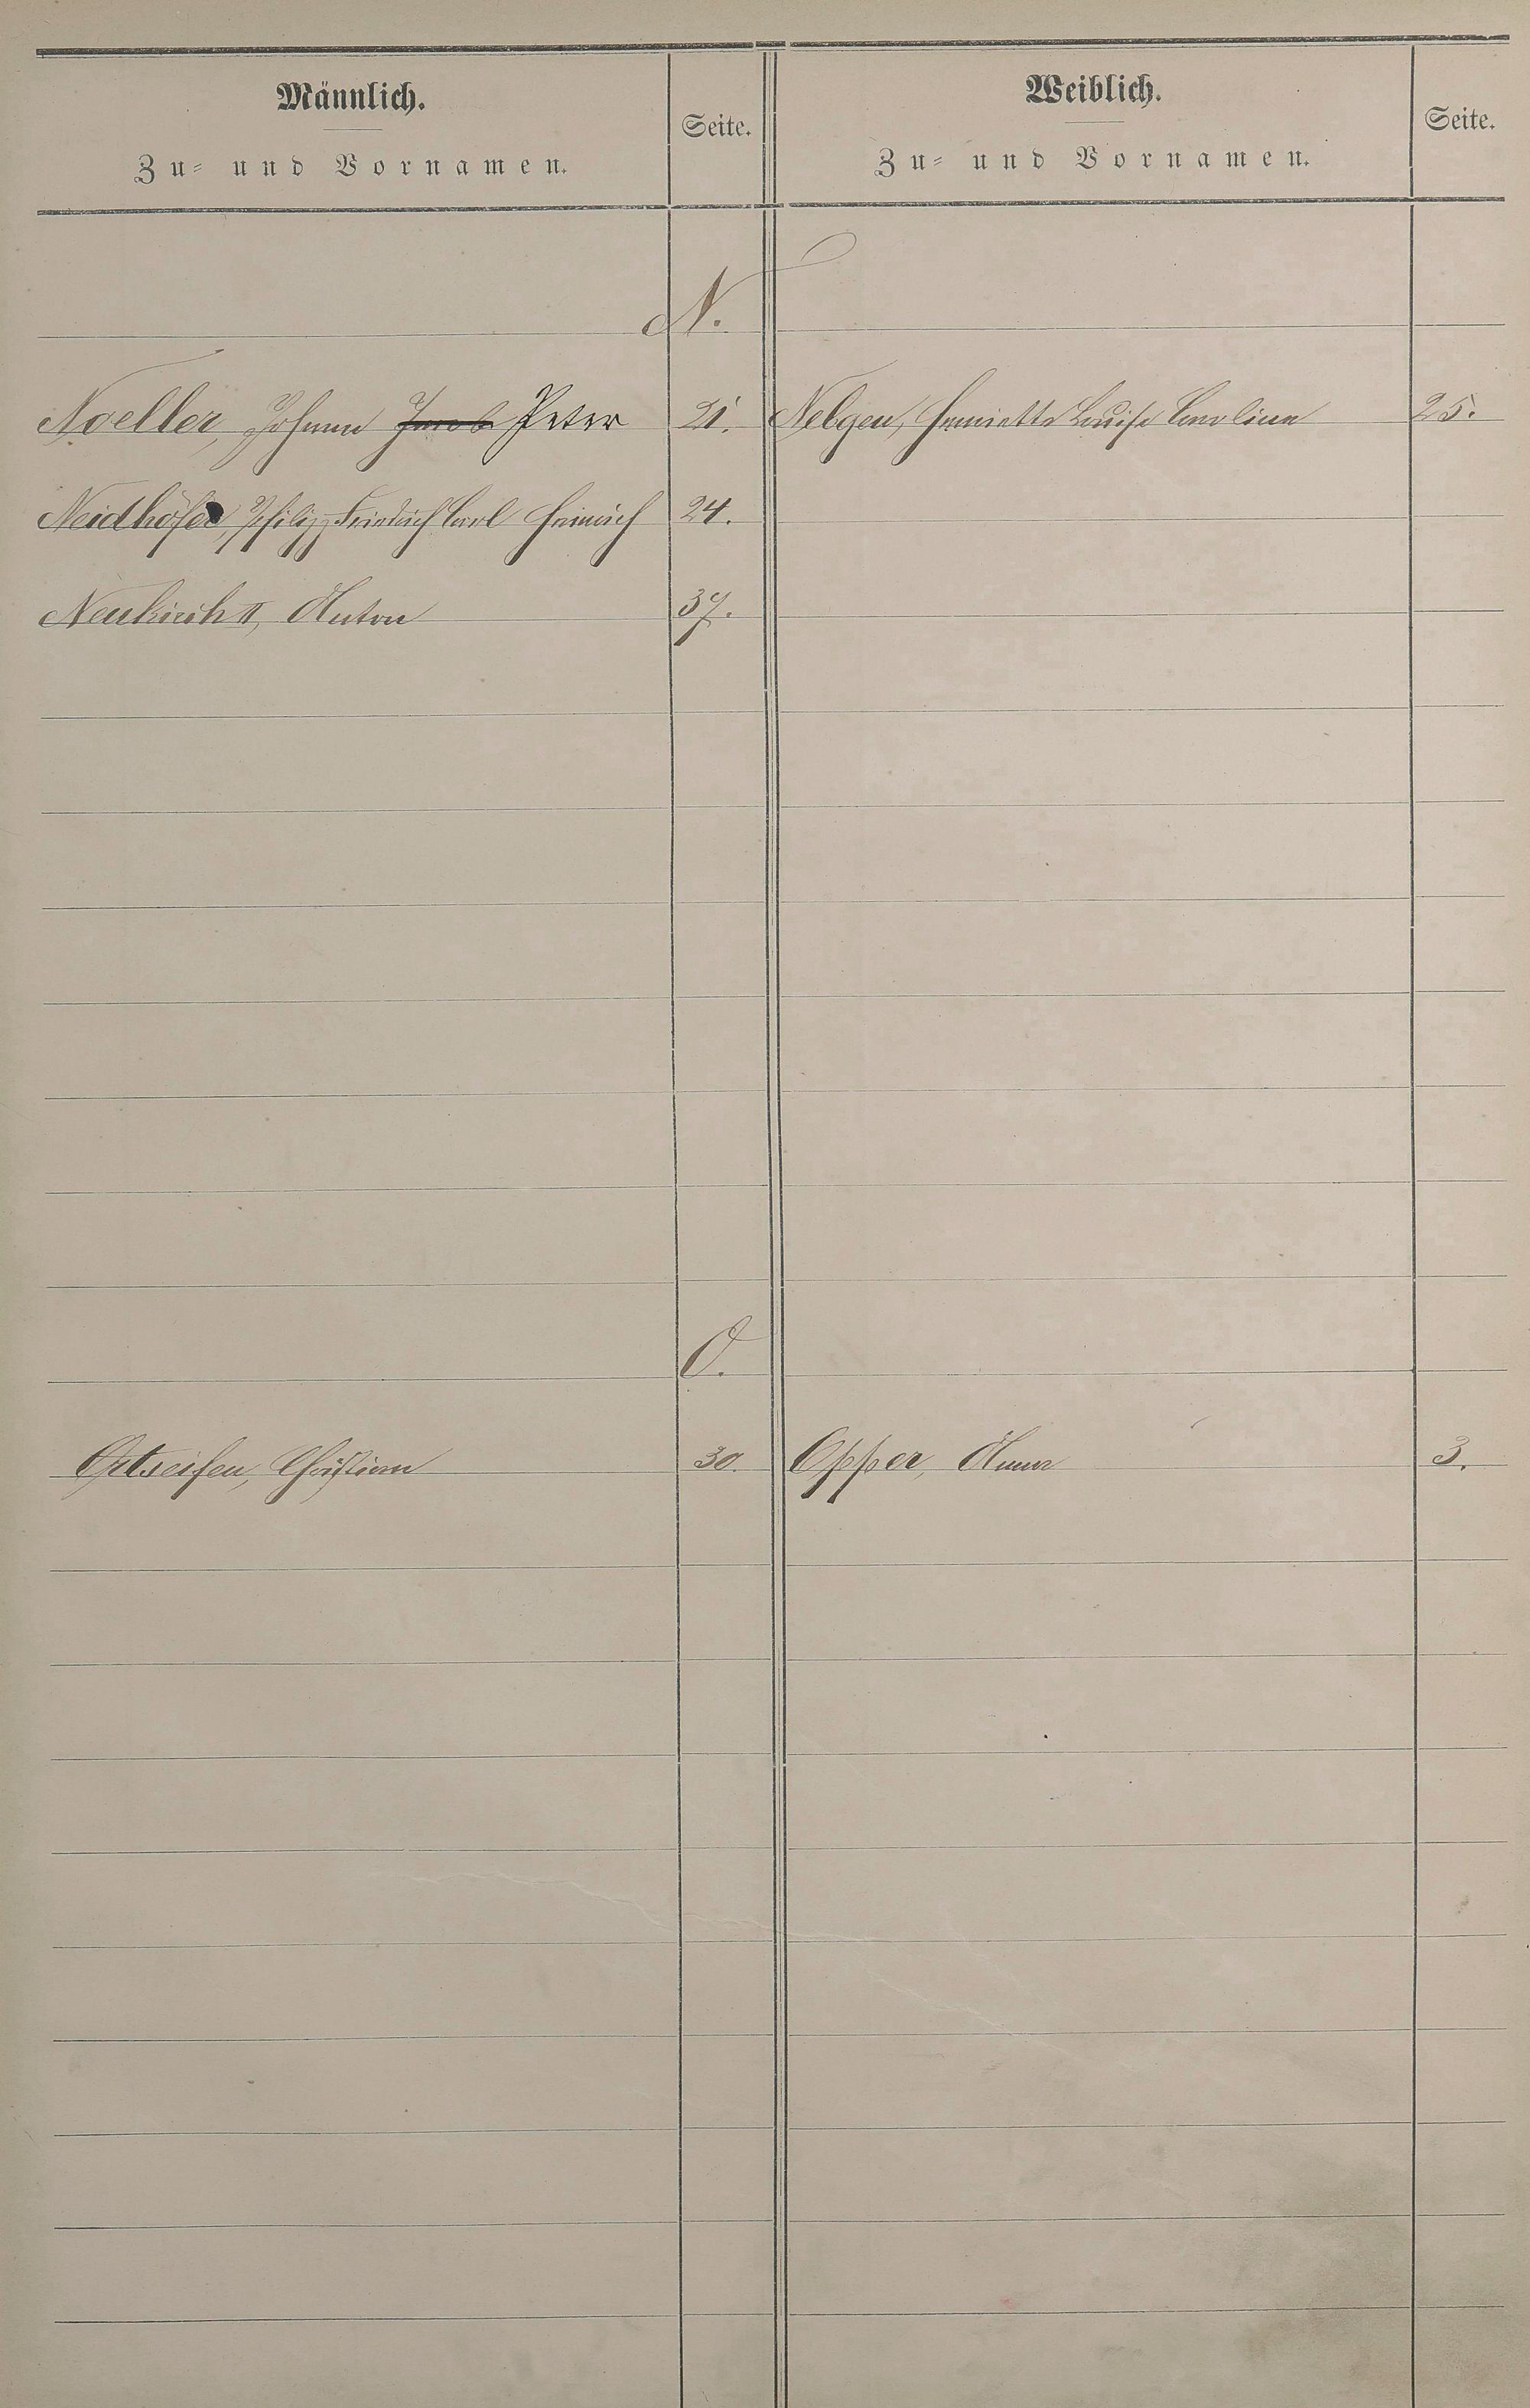 Männlich.
Zu- und Vornamen.
Seite.
Weiblich.
Zu- und Vornamen.
Seite.
N.
Noeller, Johann Jacob Peter 21. Nebgen, Henriette Louise Caroline 25.
Neidhöfer, Philipp Friedrich Carl Heinrich 24.
Neukirch II, Anton 37.
O.
Ortseifen, Christian 30. Opper, Anna 3.